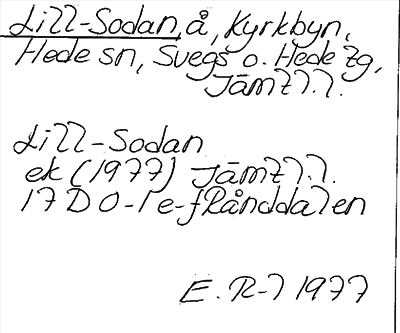 Lill-Sodan, å, Kyrkbyn,
Hede sn, Svegs o. Hede tg,
Jämtl.l.
Lill-Sodan
ek (1977) Jämtl.l.
17 D 0-1 e-f Rånddalen
E. R-l 1977